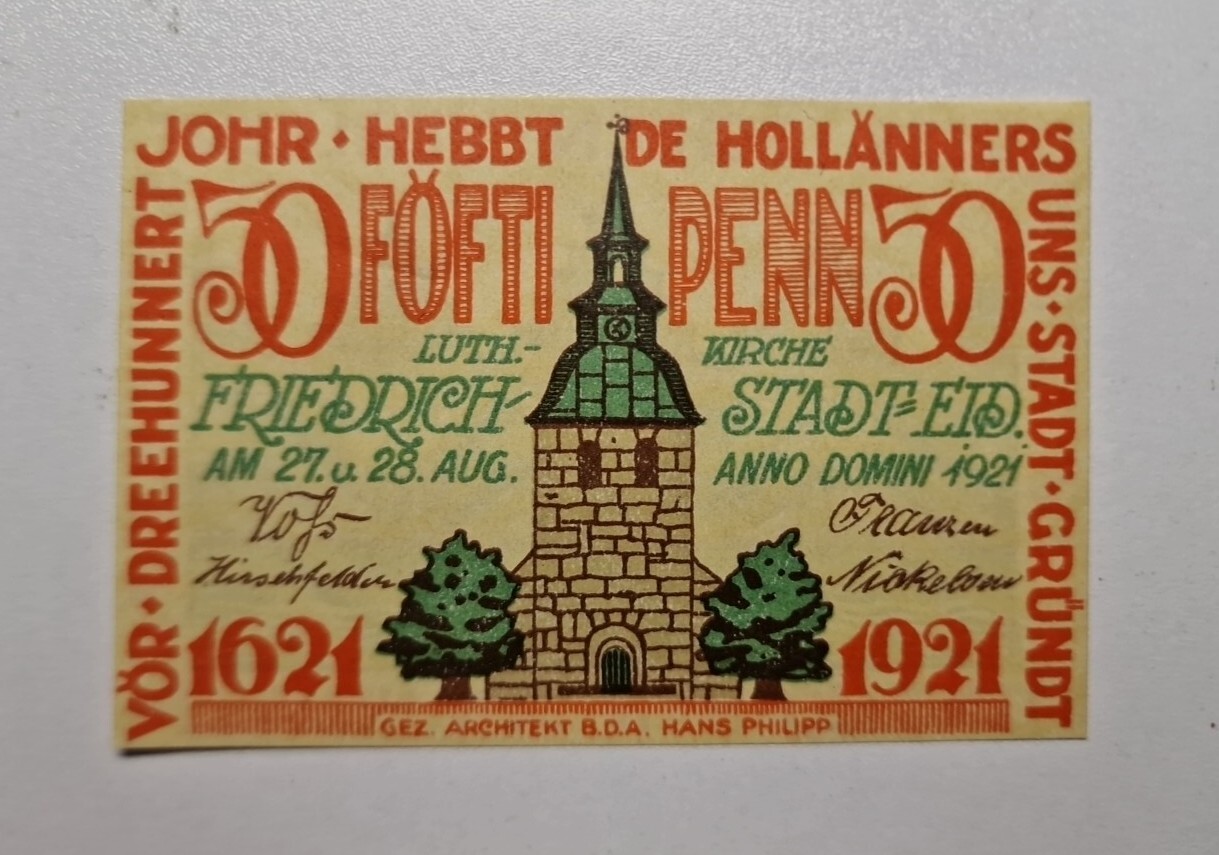 VÖR · DREEHUNNERT
JOHR · HEBBT DE HOLLÄNNERS
UNS · STADT · GRÜNDT
50 FÖFTI PENN 50
LUTH.- KIRCHE
FRIEDRICH- STADT-EID.
AM 27. u. 28. AUG. ANNO DOMINI 1921
Voß Franzen
Hirschfelder Nickelsen
1621 1921
GEZ. ARCHITEKT B.D.A. HANS PHILIPP